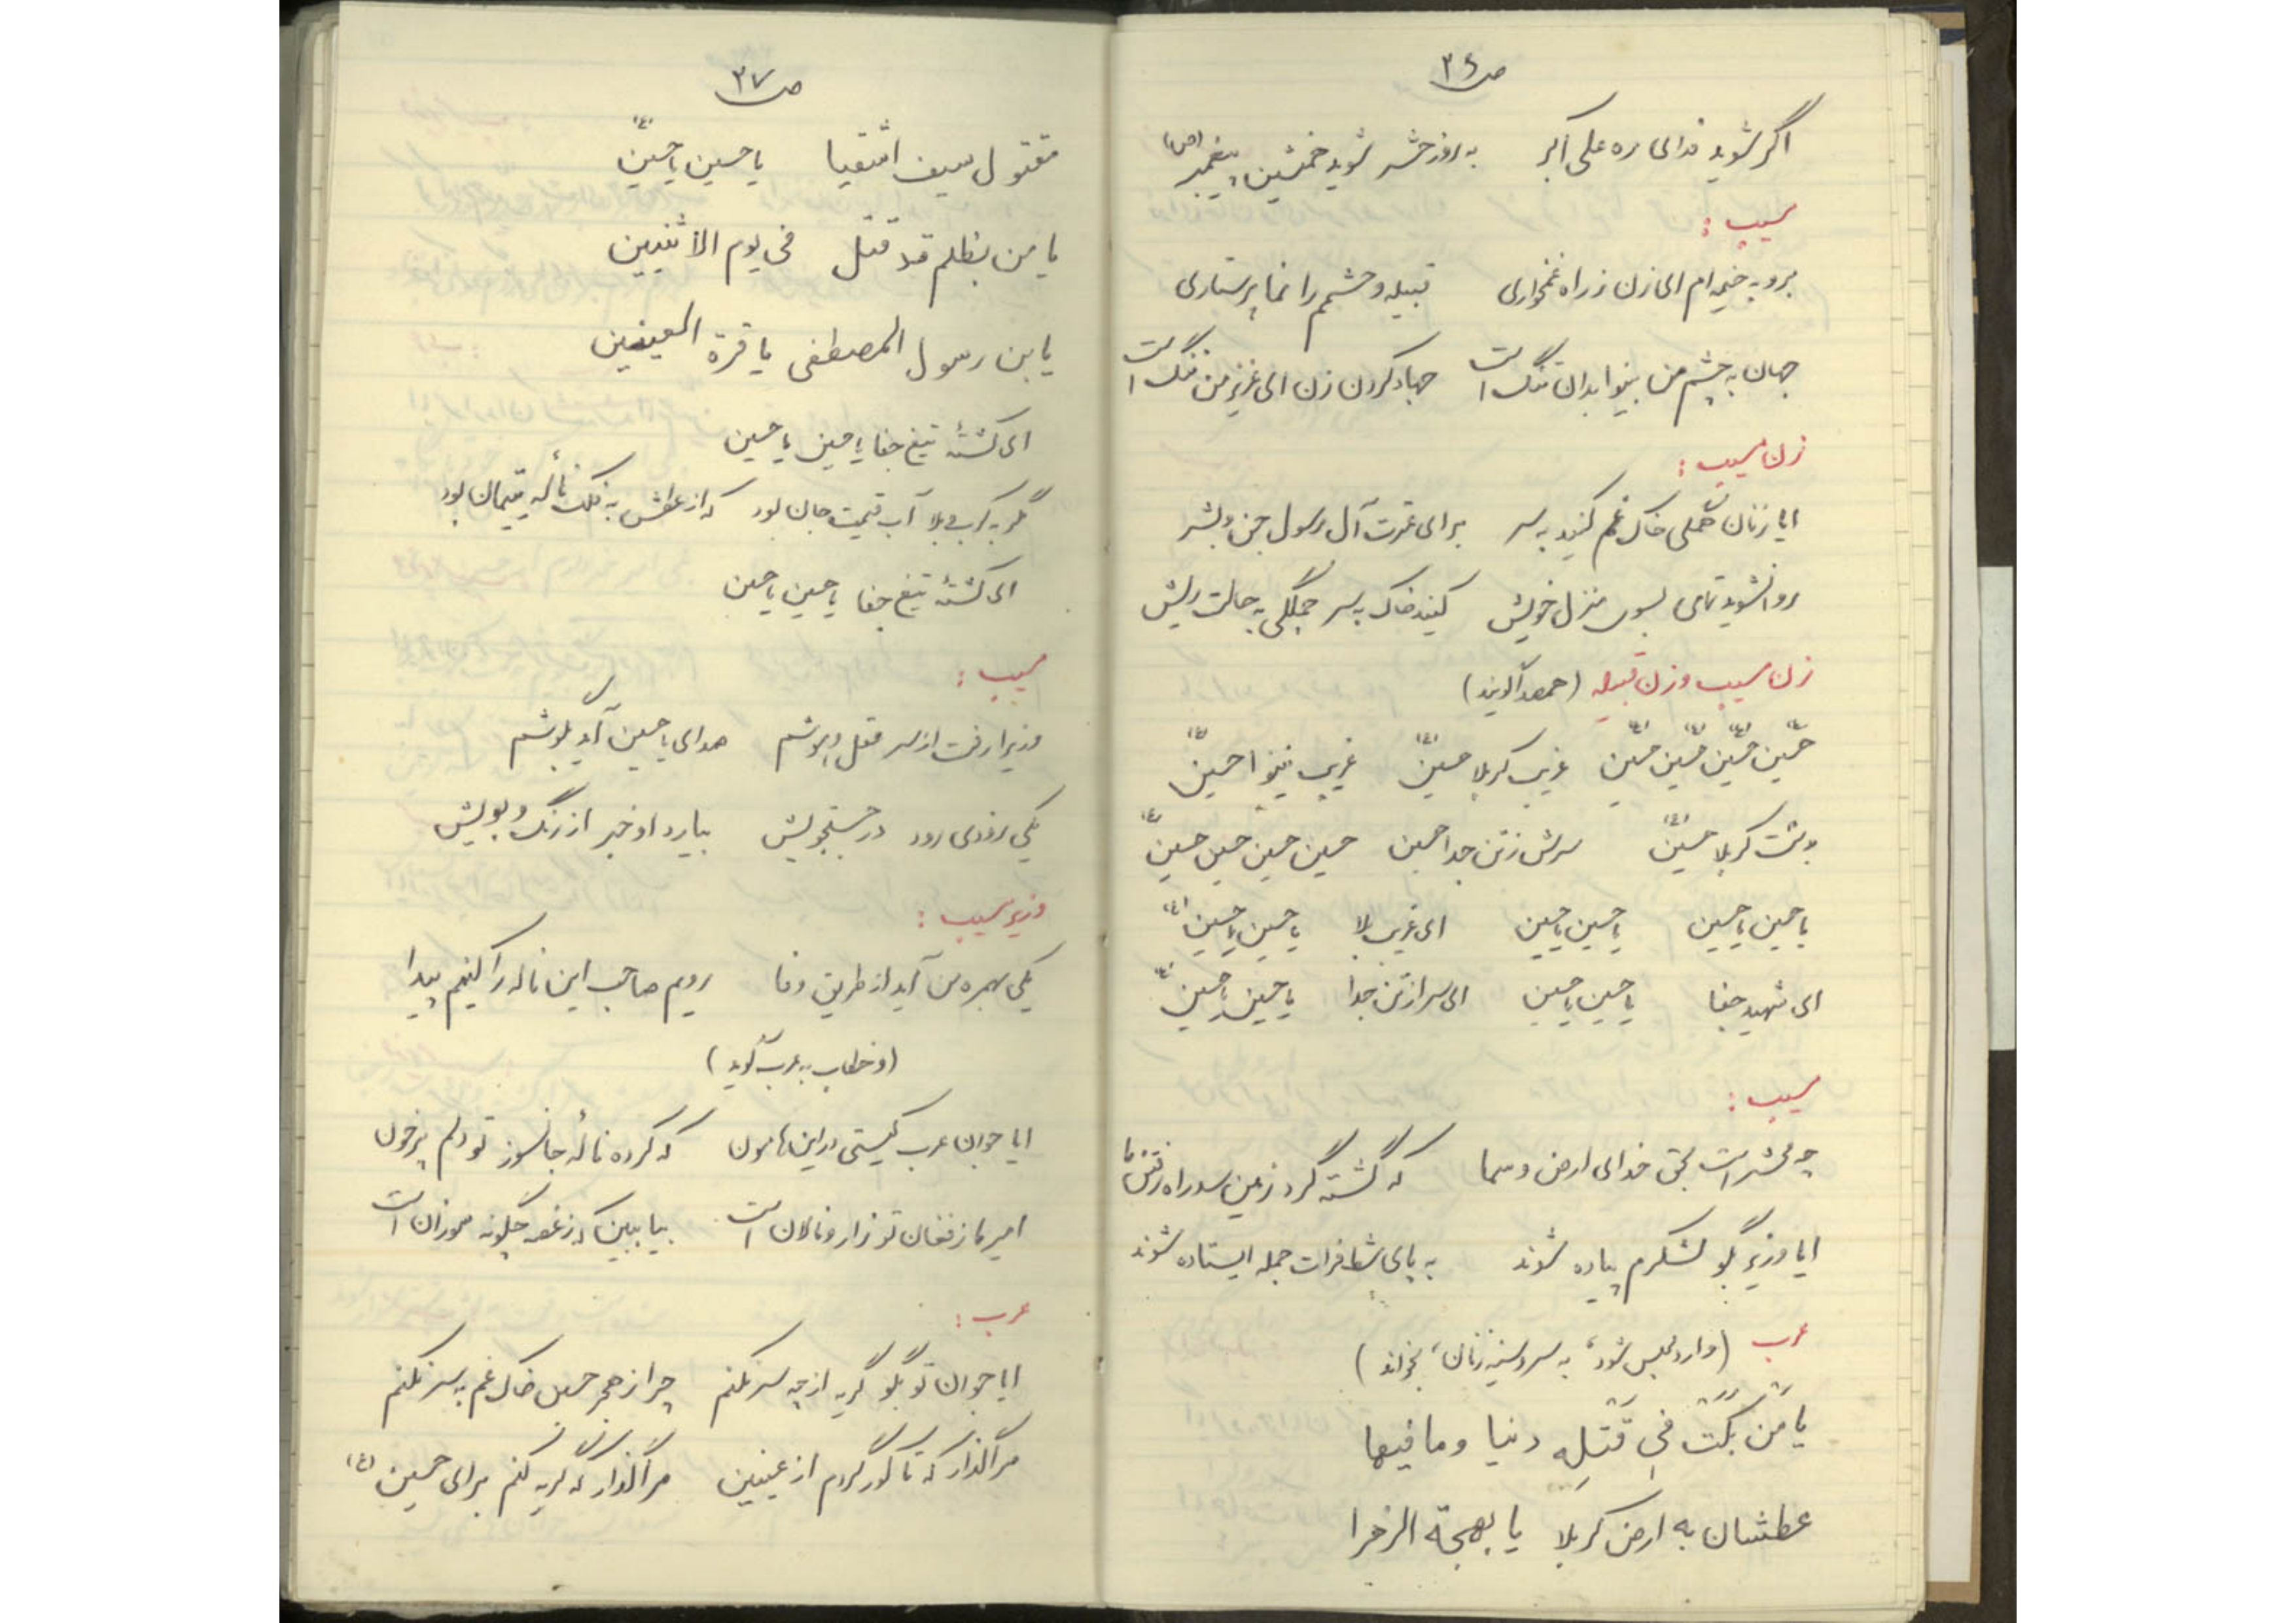 ص ۳۶
اگر شوید فدای ره علی اکبر به روز حشر شوید خمشین پیغمبر (ص)
مسیب :
برو به خیمه ام ای زن ز راه غمخواری قبیله و حشمم را نما پرستاری
جهان به چشم من بینوا بدان تنگ است جهاد کردن زن ای عزیز من ننگ است
زن مسیب :
ایا زنان همگی خاک غم کنید به سر برای عترت آل رسول جن و بشر
روانشوید تمامی بسوی منزل خویش کنید خاک به سر جملگی به حالت ریش
زن مسیب و زن قبیله (همصدا گویند)
حسین حسین حسین حسین غریب کربلا حسین غریب نینوا حسین
بدشت کربلا حسین سرش ز تن جدا حسین حسین حسین حسین حسین
یا حسین یا حسین یا حسین یا حسین ای غریب بلا یا حسین یا حسین
ای شهید جفا یا حسین یا حسین ای سر از تن جدا یا حسین یا حسین
مسیب :
چه محشر است بحق خدای ارض و سما که گشته گرد زمین سد راه رفتن ما
ایا وزیر بگو لشکرم پیاده شوند به پای شط فرات جمله ایستاده شوند
عرب (وارد مجلس شود، به سر و سینه زنان، بخواند)
یا مَن بَکَت فی قَتلِهِ دنیا و مافیها
عطشان به ارض کربلا یا بهجة الزهرا
ص ۳۷
مقتول سیف اشقیا یا حسین یا حسین (ع)
یا من بظلم قد قتل فی یوم الاثنیین
یابن رسول المصطفی یا قرة العینین
ای کشتهٔ تیغ جفا یا حسین یا حسین
مگر به کرب و بلا آب قیمت جان بود که از عطش به فلک نالهٔ یتیمان بود
ای کشتهٔ تیغ جفا یا حسین یا حسین
مسیب :
وزیرا رفت از سر عقل و هوشم صدای یا حسین آید بگوشم
یکی زودی رود در جستجویش بیارد او خبر از رنگ و بویش
وزیر مسیب :
یکی بهمره من آید از طریق وفا رویم صاحب این ناله را کنیم پیدا
(و خطاب به عرب گوید)
ایا جوان عرب کیستی در این هامون که کرده نالهٔ جانسوز تو دلم پر خون
امیر ما ز فغان تو زار و نالان است بیا ببین که ز غصه چگونه سوزان است
عرب :
ایا جوان تو بگو گریه از چه سر نکنم چرا ز هجر حسین خاک غم به سر نکنم
مرا گذار که تا کور گردم از عینین مرا گذار که گریه کنم برای حسین (ع)